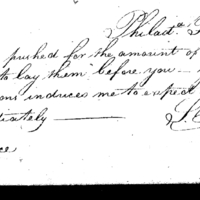 Philad.a
pushed for the amount of
to lay them before you —
ons induces me to expect
tiately ———